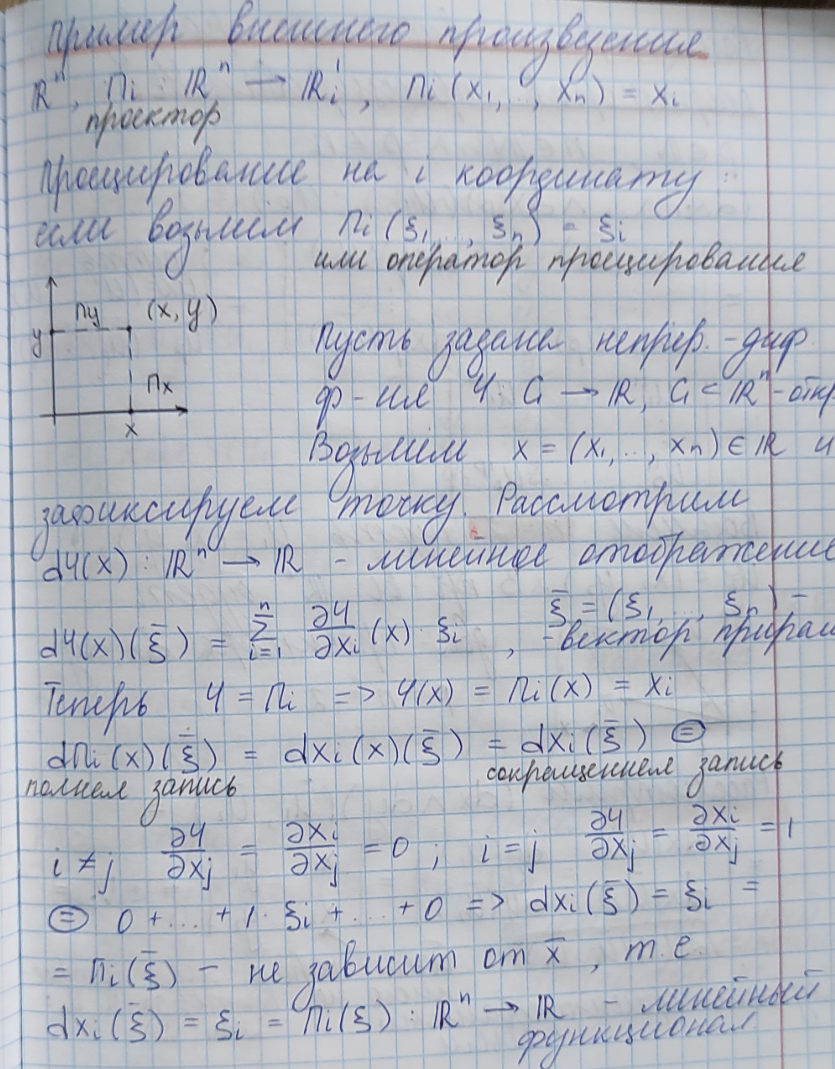 Пример внешнего произведения
ℝⁿ, Пi : ℝⁿ → ℝ¹i, Пi(x₁,..., xₙ) = xi
проектор
Проецирование на i координату
если возьмём Пi(ξ₁,..., ξₙ) = ξi
или оператор проецирования
Пy (x, y)
y
Пx
x
Пусть задана непрер.-диф.
ф-ия Ψ : G → ℝ, G ⊂ ℝⁿ - откр
Возьмём x = (x₁,..., xₙ) ∈ ℝ и
зафиксируем точку. Рассмотрим
dΨ(x) : ℝⁿ → ℝ - линейное отображение
dΨ(x)(ξ̄) = ∑ⁿᵢ₌₁ ∂Ψ/∂xi (x) · ξi, ξ̄ = (ξ₁,..., ξₙ) -
- вектор приращ
Теперь Ψ = Пi => Ψ(x) = Пi(x) = xi
dПi(x)(ξ̄) = dxi(x)(ξ̄) = dxi(ξ̄) ⊜
полная запись сокращенная запись
i ≠ j ∂Ψ/∂xj = ∂xi/∂xj = 0 ; i = j ∂Ψ/∂xj = ∂xi/∂xj = 1
⊜ 0 + ... + 1 · ξi + ... + 0 => dxi(ξ̄) = ξi =
= Пi(ξ̄) - не зависит от x̄, т.е.
dxi(ξ̄) = ξi = Пi(ξ) : ℝⁿ → ℝ - линейный
функционал